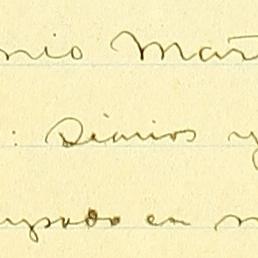 nio Mart
: Diarios y
upado en m